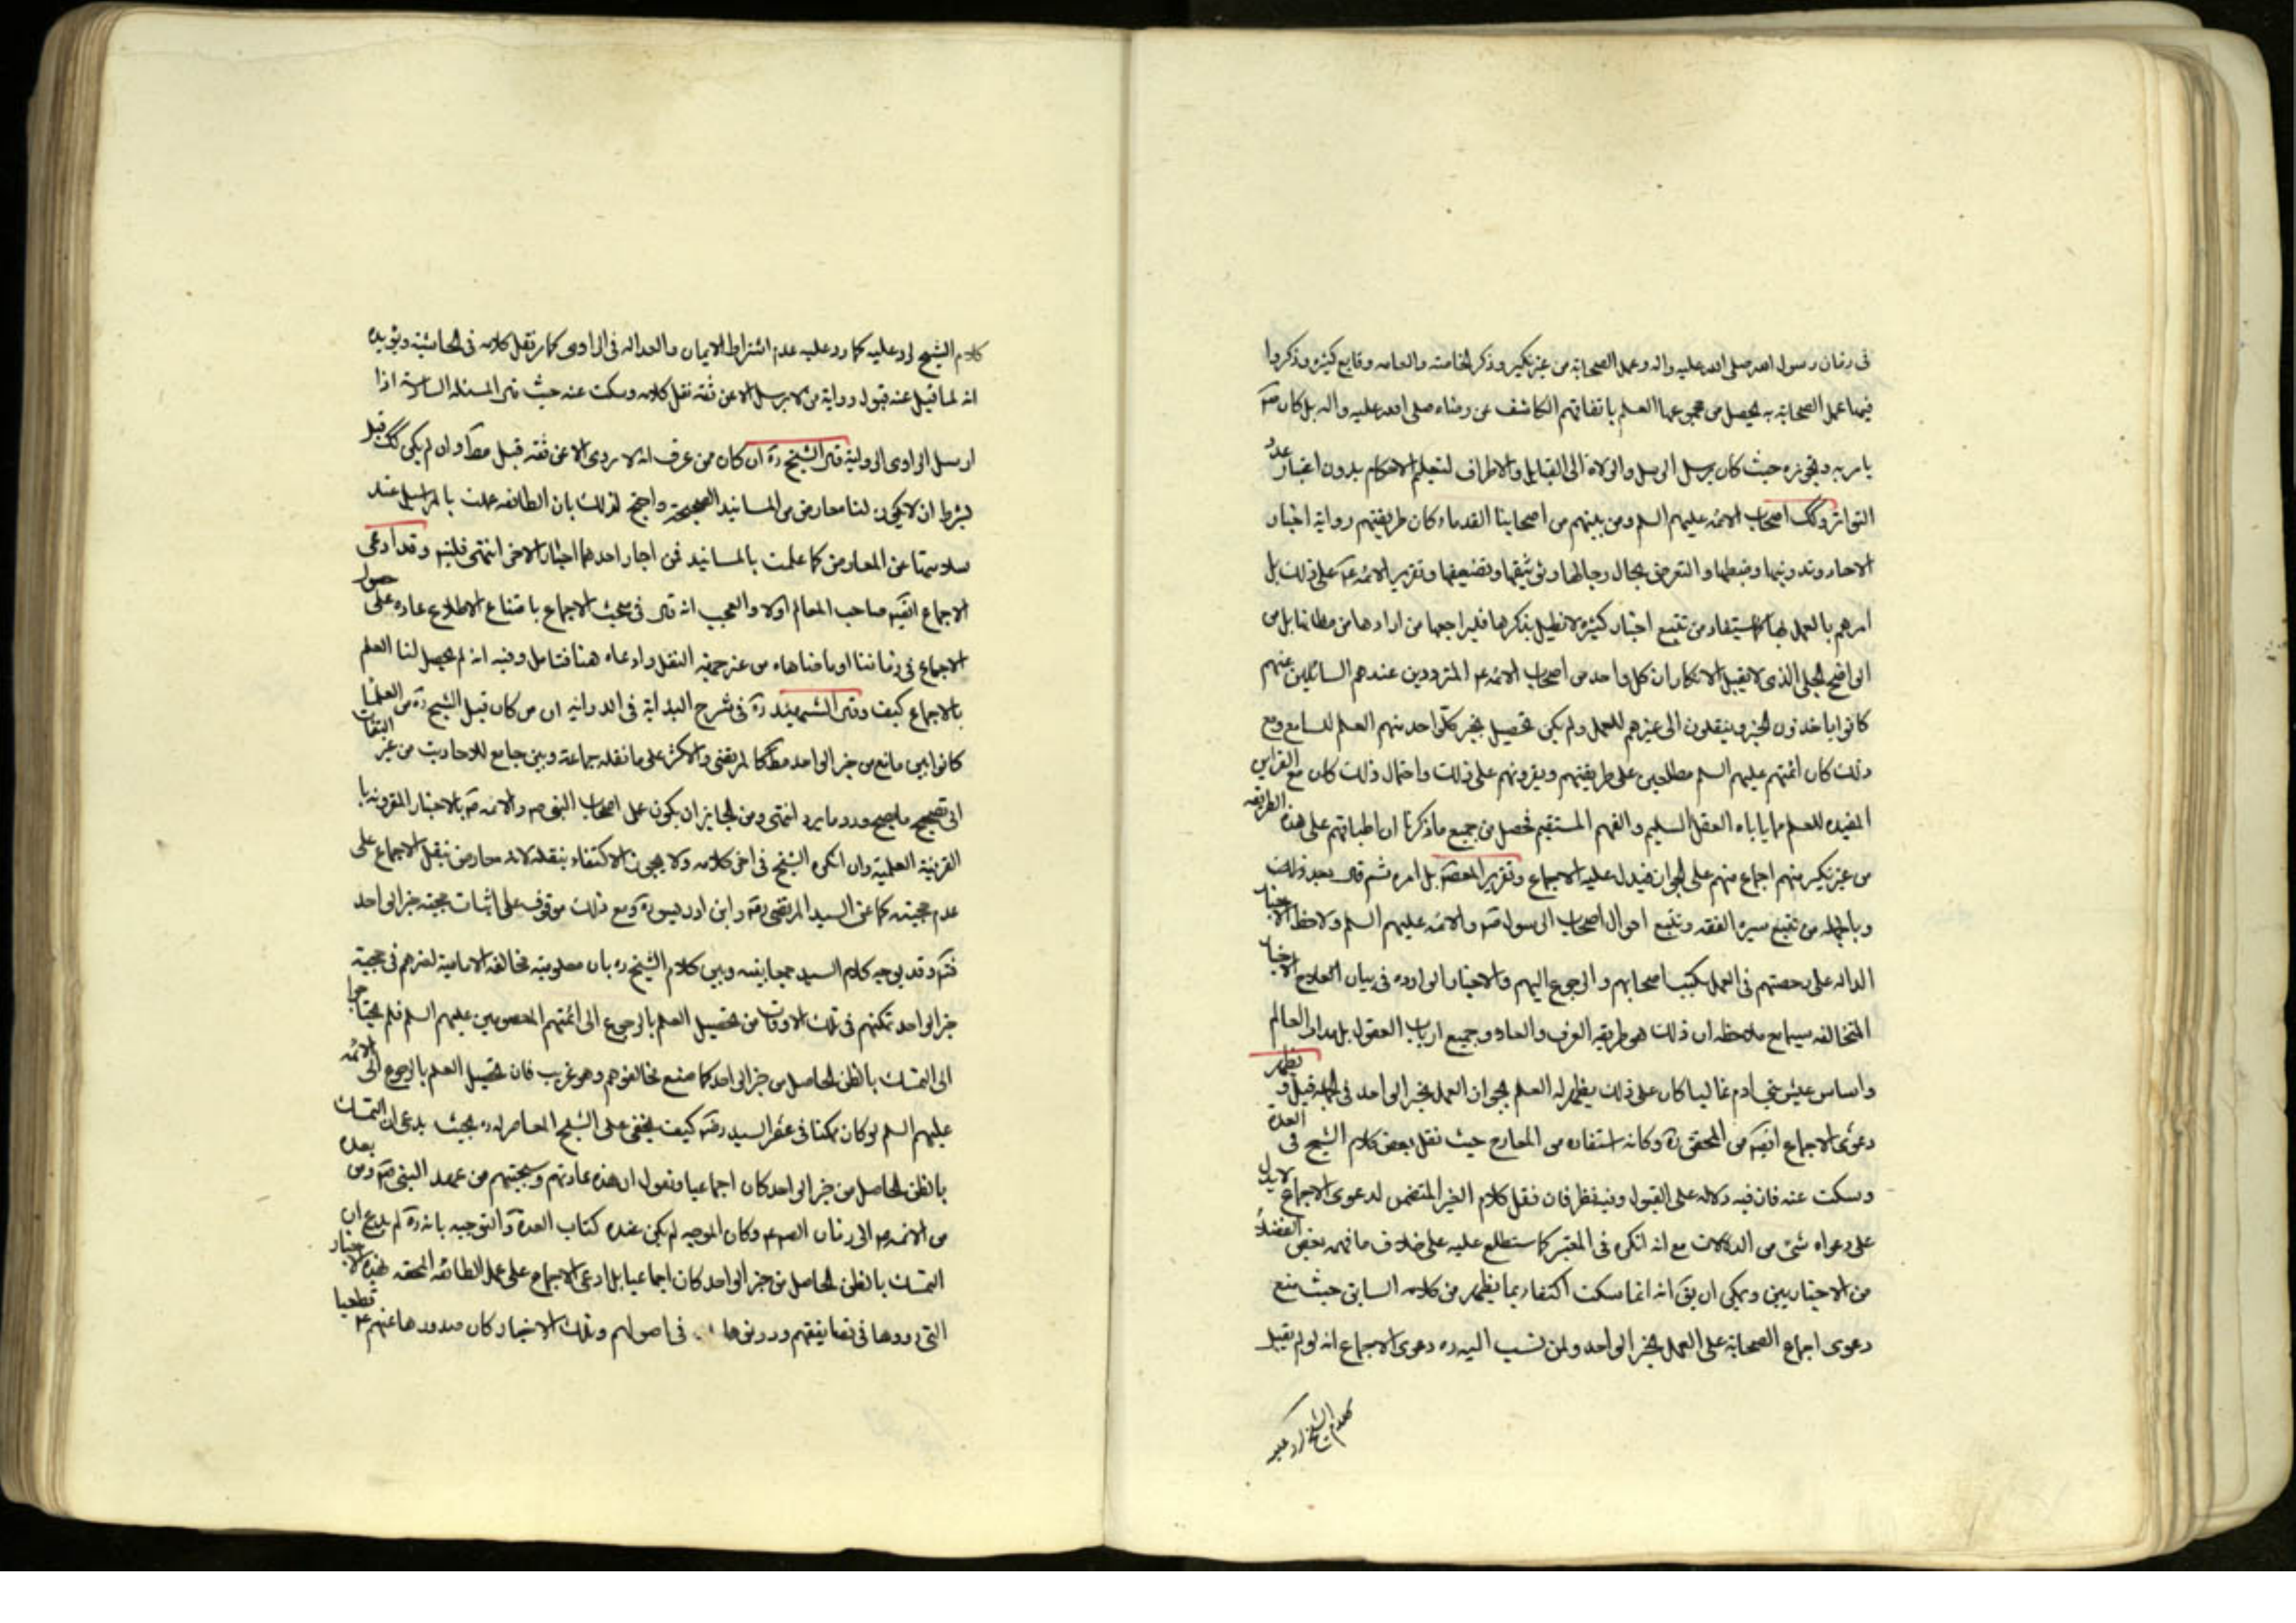 في زمان رسول الله صلى الله عليه واله وعمل الصحابة من غير نكير وذكر الخاصة والعامه وقايع كثيره وذكروا
فيها عمل الصحابة به يحصل من مجموعها العلم باتفاقهم الكاشف عن رضاه صلى الله عليه واله بل كان صم
يامر به ويجوزه حيث كان يرسل الرسل والولاة الى القبايل والاطراف لتعليم الاحكام بدون اعتبار عدد
التواتر وكك اصحاب الائمه عليهم السلم ومن يليهم من اصحابنا القدماء كان طريقتهم رواية اخبار
الاحاد وتدوينها وضبطها والتعرض بحال رجالها وتوثيقها وتضعيفها وتقرير الائمه عم على ذلك بل
امرهم بالعمل بها كما يستفاد من تتبع اخبار كثيرة لا نطيل بذكرها فليراجعها من ارادها من مظانها بل من
الواضح الجلى الذى لا يقبل الانكار ان كل واحد من اصحاب الائمه عم المترددين عندهم السائلين عنهم
كانوا ياخذون الخبر وينقلون الى غيرهم للعمل ولم يكن تحصيل بخبر كل واحد منهم العلم للسامع ومع
ذلك كان ائمتهم عليهم السلم مطلعين على طريقتهم ويقرونهم على ذلك واحتمال ذلك كان مع القراين
المفيده للعلم مما ياباه العقل السليم والفهم المستقيم فحصل من جميع ما ذكرنا ان اطباقهم على هذه الطريقه
من غير نكير منهم اجماع منهم على الجواز فيدل عليه الاجماع وتقرير المعصوم بل امره ثم قال بعد ذلك
وبالجمله من تتبع سيرة الفقه وتتبع احوال اصحاب الرسول صم والائمه عليهم السلم ولاحظ الاخبار
الداله على رخصتهم في العمل بكتب اصحابهم والرجوع اليهم والاخبار الوارده في بيان العلاج الاخبار
المتخالفه سيما مع ملاحظه ان ذلك هو طريقه العرف والعاده وجميع ارباب العقول بل مدار العالم
واساس عيش بني ادم غالبا كان على ذلك يظهر له العلم بجواز العمل بخبر الواحد في الجملة قيل و يظهر
دعوى الاجماع ايضا من المحقق ره وكانه استفاده من المعارج حيث نقل بعض كلام الشيخ في العدة
وسكت عنه فان فيه دلاله على القبول وفيه نظر فان نقل كلام الغير المتضمن لدعوى الاجماع لا يدل
على دعواه شئ من الدلالات مع انه انكره في المعتبر كما ستطلع عليه على خلاف ما فهمه بعض الفضلاء
من الاخباريين ويمكن ان يق انه انما سكت اكتفاء بما يظهر من كلامه السابق حيث منع
دعوى اجماع الصحابة على العمل بخبر الواحد ولمن نسب اليه ره دعوى الاجماع انه لو لم يقبل
كلام الشيخ لرد عليه
كلام الشيخ لرد عليه كما رد عليه عدم اشتراط الايمان والعداله في الراوى كما مر نقل كلامه في الحاشية ويؤيده
انه لما قيل عنه قبول رواية من لا يرسل الا عن ثقة نقل كلامه وسكت عنه حيث قال المسئله السادسة اذا
ارسل الراوى الرواية قال الشيخ ره ان كان ممن عرف انه لا يروى الا عن ثقة قبل مط وان لم يكن كك قبل
بشرط ان لا يكون لنا معارض من المسانيد الصحيحة واحتج لذلك بان الطائفه عملت بالمراسيل عند
سلامتها عن المعارض كما عملت بالمسانيد فمن اجاز احدهما اجاز الاخر انتهى فليتم وقد ادعى
الاجماع ايضا صاحب المعالم اولا والعجب انه قال في بحث الاجماع بامتناع الاطلاع عاده على حصول
الاجماع في زماننا او ما ضاهاه من غير جهة النقل وادعاه هنا فتامل وفيه انه لم يحصل لنا العلم
بالاجماع كيف وقال الشهيد ره في شرح البداية في الدراية ان من كان قبل الشيخ ره من العلماء
كانوا بين مانع من خبر الواحد مط كالمرتضى والاكثر على ما نقله جماعة وبين جامع للاحاديث من غير التفات
الى تصحيح ما يصح ورد ما يرد انتهى ومن الجايز ان يكون عمل اصحاب النبى صم والائمه عم بالاخبار المقرونه با
القرينة العلمية وان انكره الشيخ في اخر كلامه ولا يجوز الاكتفاء بنقله لانه معارض بنقل الاجماع على
عدم حجيته كما عن السيد المرتضى رضه وابن ادريس ره ومع ذلك موقوف على اثبات حجية خبر الواحد
فتم وقد يوجه كلام السيد جمعا بينه وبين كلام الشيخ ره بان معلومية مخالفه الامامية لغيرهم في حجية
خبر الواحد تمكنهم في تلك الاوقات من تحصيل العلم بالرجوع الى ائمتهم المعصومين عليهم السلم فلم يحتاجوا
الى التمسك بالظن الحاصل من خبر الواحد كما صنع مخالفوهم وهو غريب فان تحصيل العلم بالرجوع الى الائمه
عليهم السلم لو كان ممكنا في عصر السيد رضه كيف يخفى على الشيخ المعاصر له ره بحيث يدعى ان التمسك
بالظن الحاصل من خبر الواحد كان اجماعيا ونقول ان هذه عادتهم وسجيتهم من عهد النبى صم ومن بعده
من الائمه عم الى زمان الصادق عم وكان الموجه لم يكن عنده كتاب العدة والتوجيه بانه ره لم يدع ان
التمسك بالظن الحاصل من خبر الواحد كان اجماعيا بل ادعى الاجماع على عمل الطائفه المحقه بهذه الاخبار
التى رووها في تصانيفهم ودونوها في اصولهم وتلك الاخبار كان صدورها عنهم عم قطعيا